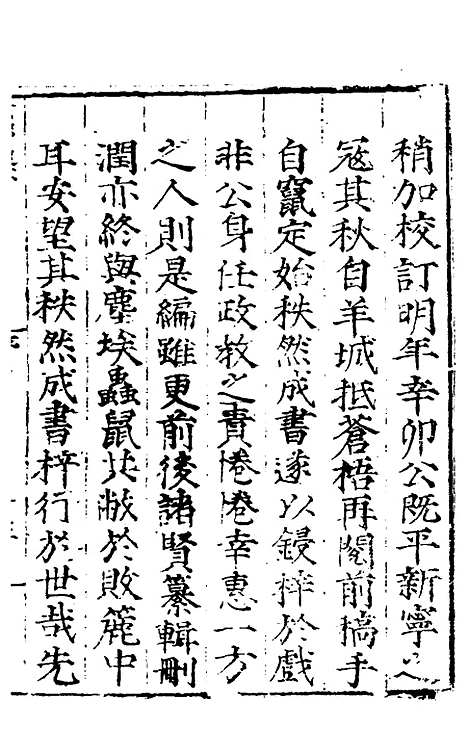 稍加校訂明年辛卯公既平新寧之
冦其秋自羊城抵蒼梧再閱前稿手
自竄定始秩然成書遂以鋟梓於戲
非公身任政教之責惓惓幸惠一方
之人則是編雖更前後諸賢纂輯刪
潤亦終與塵埃蟲鼠共敝於敗簏中
耳安望其秩然成書梓行於世哉先